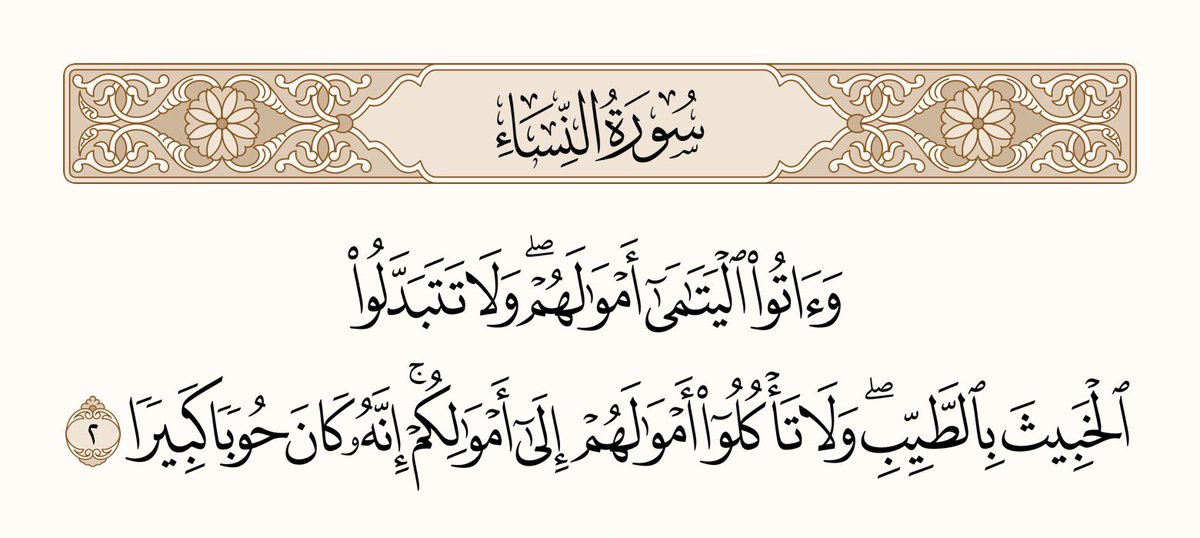 سُورَةُ النِّسَاءِ
وَءَاتُوا۟ ٱلْيَتَـٰمَىٰٓ أَمْوَٰلَهُمْ ۖ وَلَا تَتَبَدَّلُوا۟
ٱلْخَبِيثَ بِٱلطَّيِّبِ ۖ وَلَا تَأْكُلُوٓا۟ أَمْوَٰلَهُمْ إِلَىٰٓ أَمْوَٰلِكُمْ ۚ إِنَّهُۥ كَانَ حُوبًا كَبِيرًا ٢